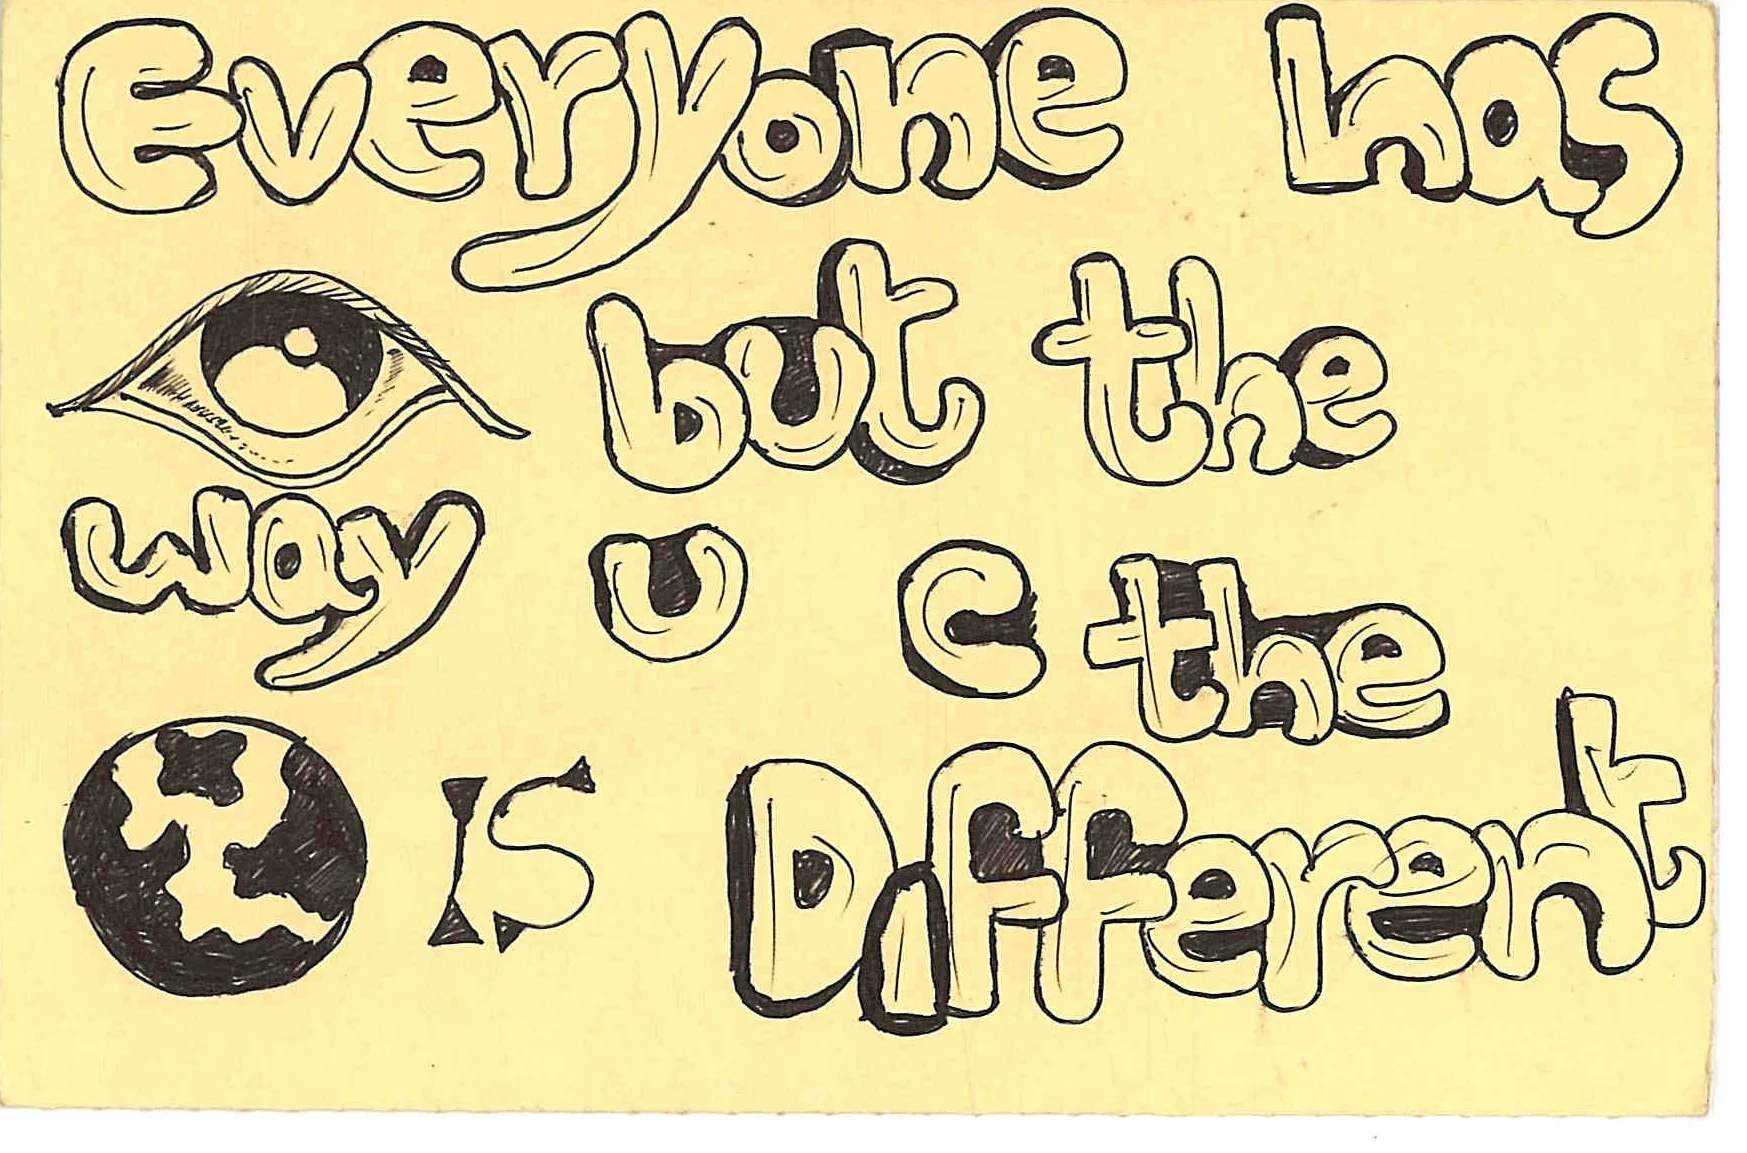 Everyone has
but the
way u c the
is Different